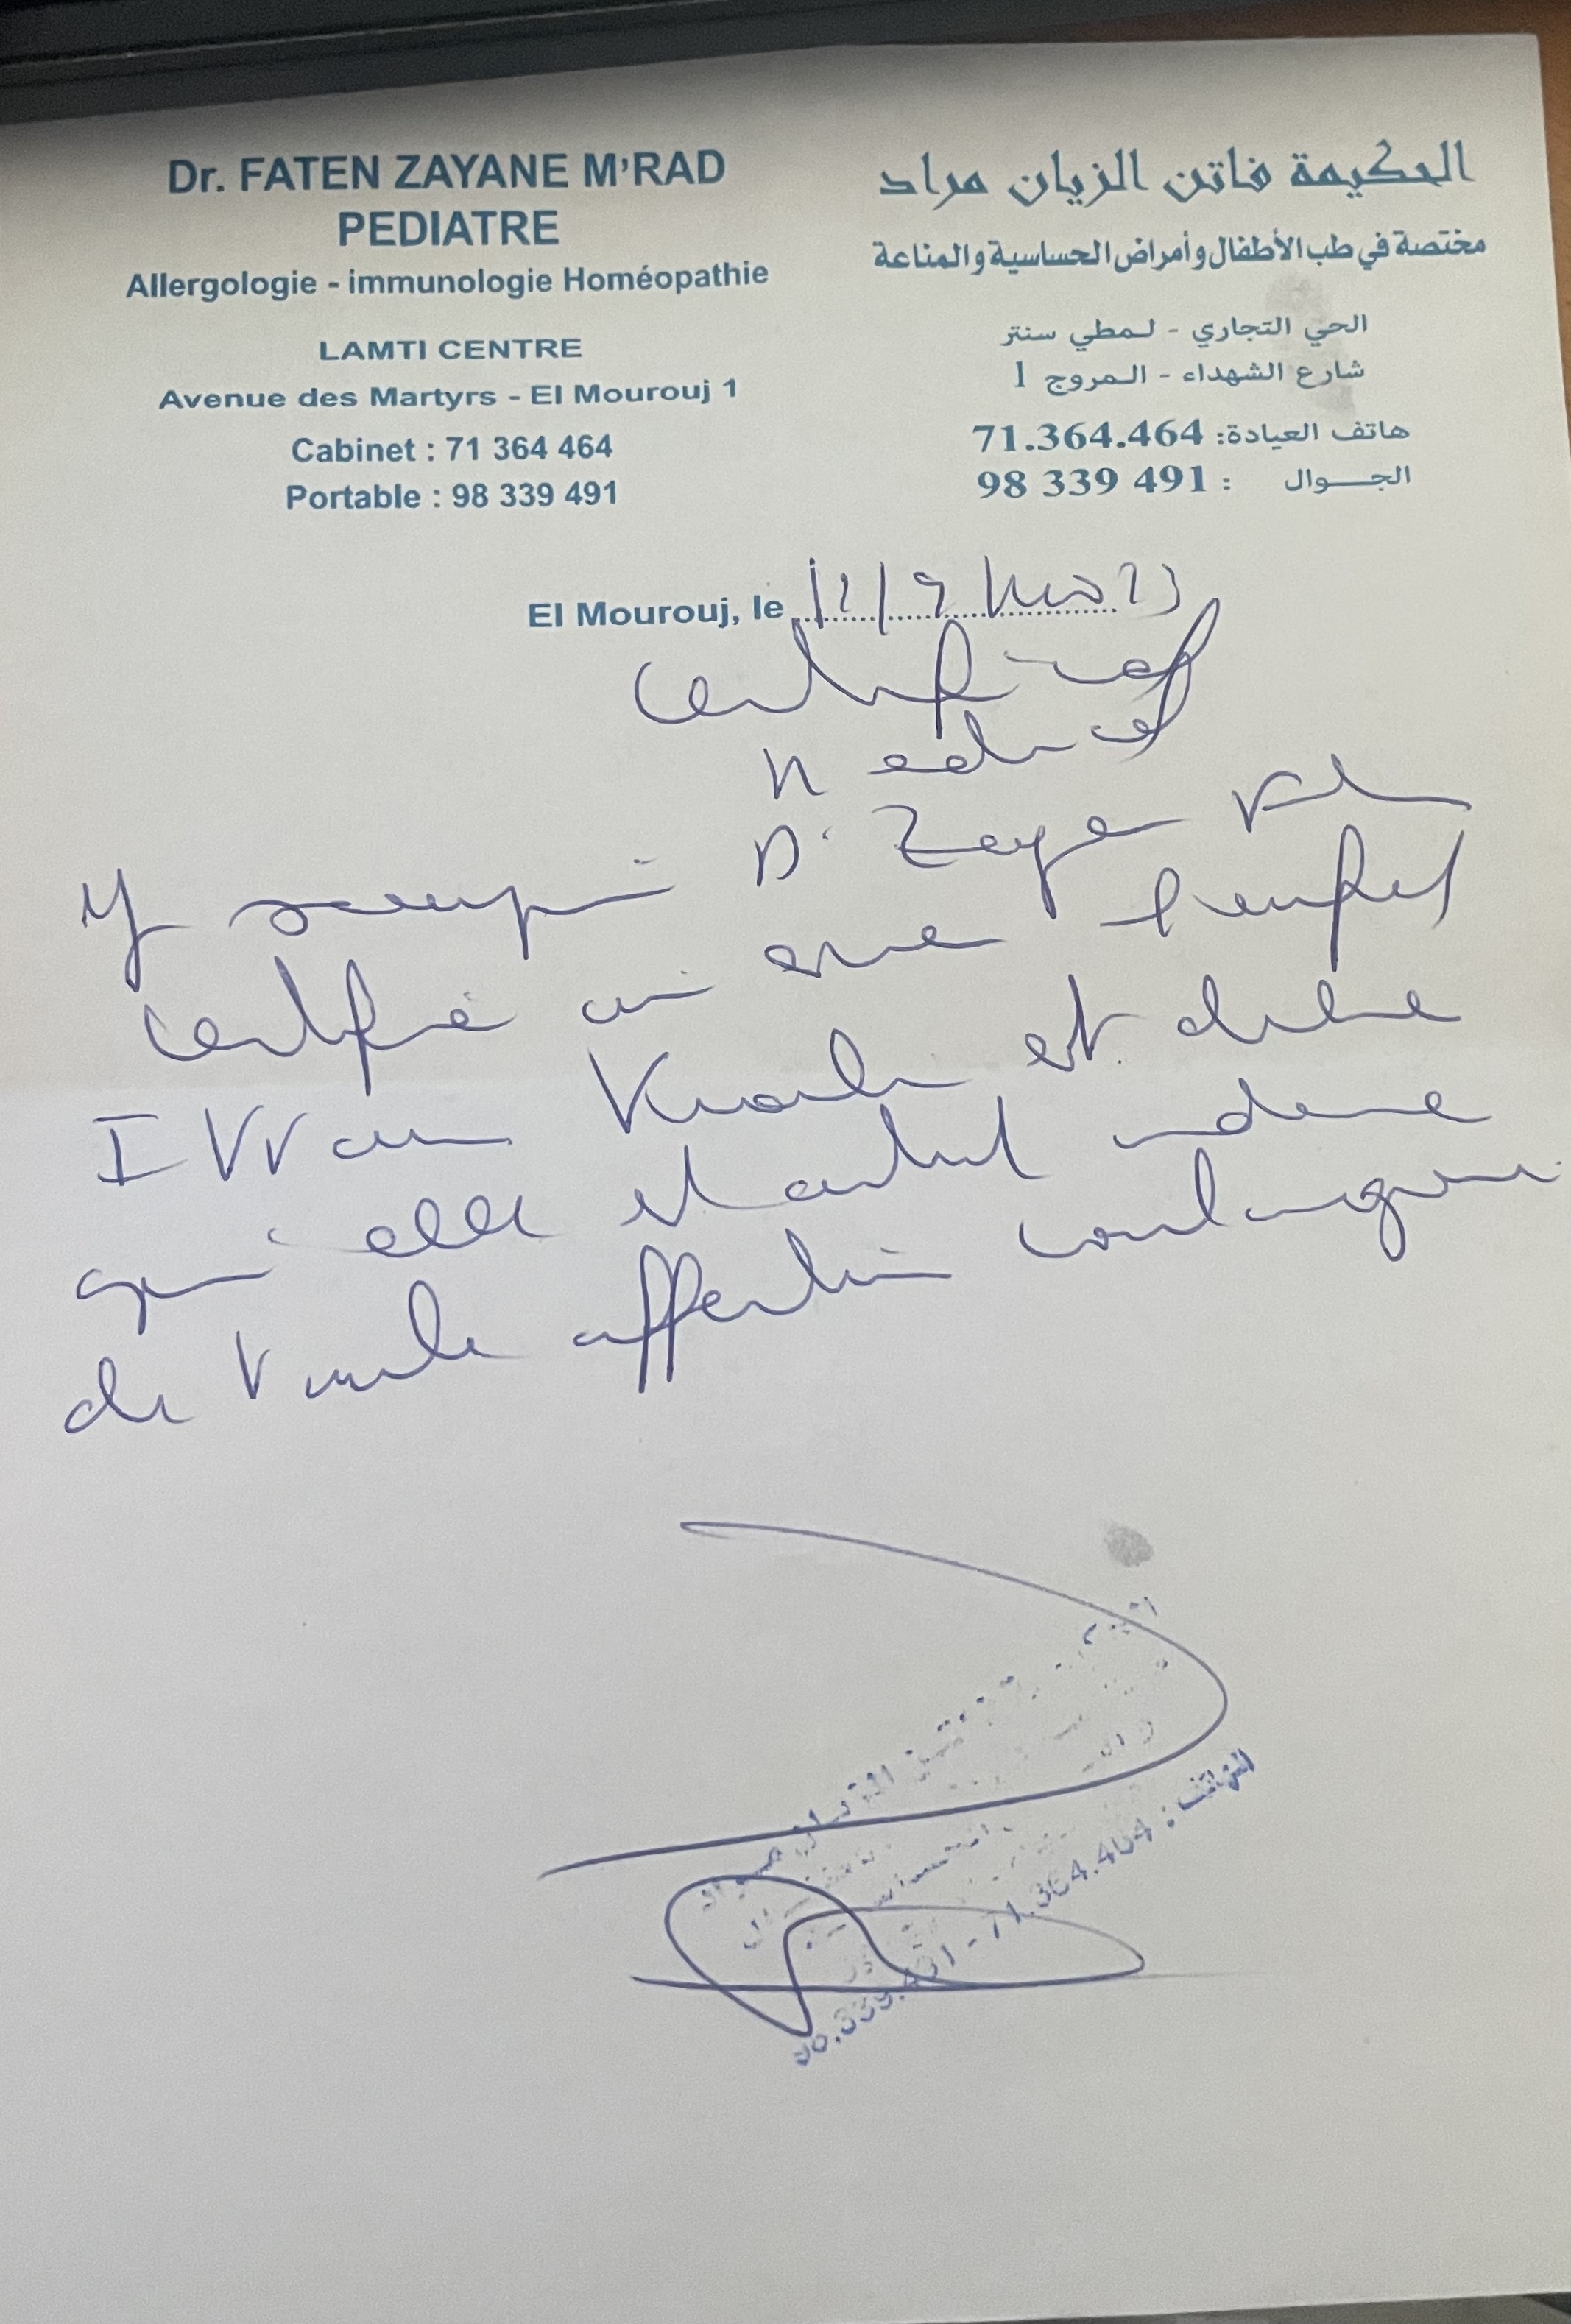 Dr. FATEN ZAYANE M'RAD
PEDIATRE
Allergologie - immunologie Homéopathie
LAMTI CENTRE
Avenue des Martyrs - El Mourouj 1
Cabinet : 71 364 464
Portable : 98 339 491
الحكيمة فاتن الزيان مراد
مختصة في طب الأطفال وأمراض الحساسية والمناعة
الحي التجاري - لمطي سنتر
شارع الشهداء - المروج 1
هاتف العيادة: 71.364.464
الجوال : 98 339 491
El Mourouj, le
Certificat
Medical
soussigné Dr Zayane
certifie que l'enfant
est
qu'elle est indemne
de toute affection contagieuse
الهاتف : 71.364.464 - 98.339.491